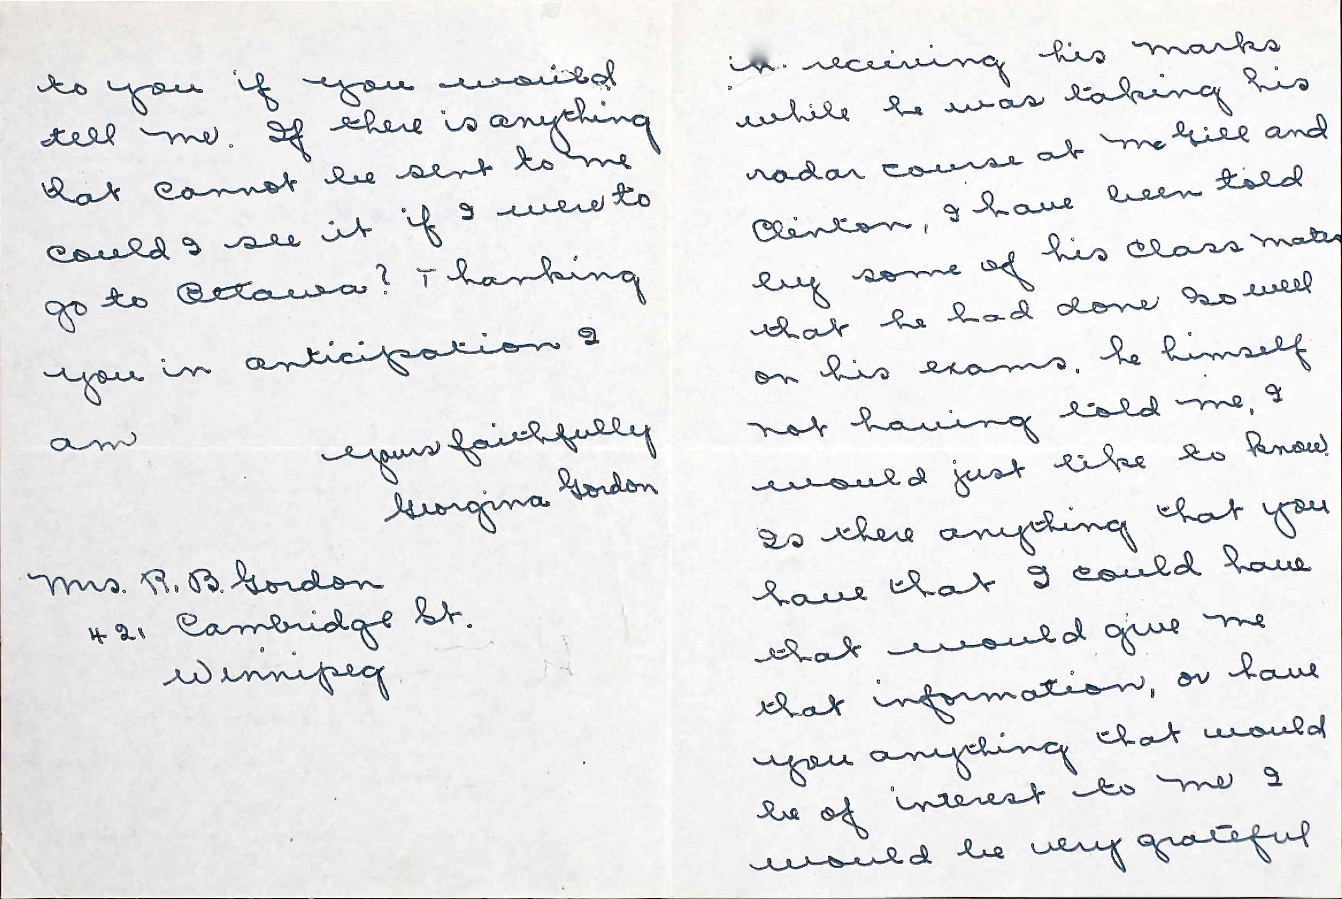 in receiving his marks
while he was taking his
radar course at McGill and
Clinton, I have been told
by some of his class mates
that he had done so well
on his exams, he himself
not having told me, I
would just like to know.
Is there anything that you
have that I could have
that would give me
that information, or have
you anything that would
be of interest to me I
would be very grateful
to you if you would
tell me. If there is anything
that cannot be sent to me
could I see it if I were to
go to Ottawa? Thanking
you in anticipation I
am
Yours faithfully
Georgina Gordon
Mrs. R. B. Gordon
421 Cambridge St.
Winnipeg